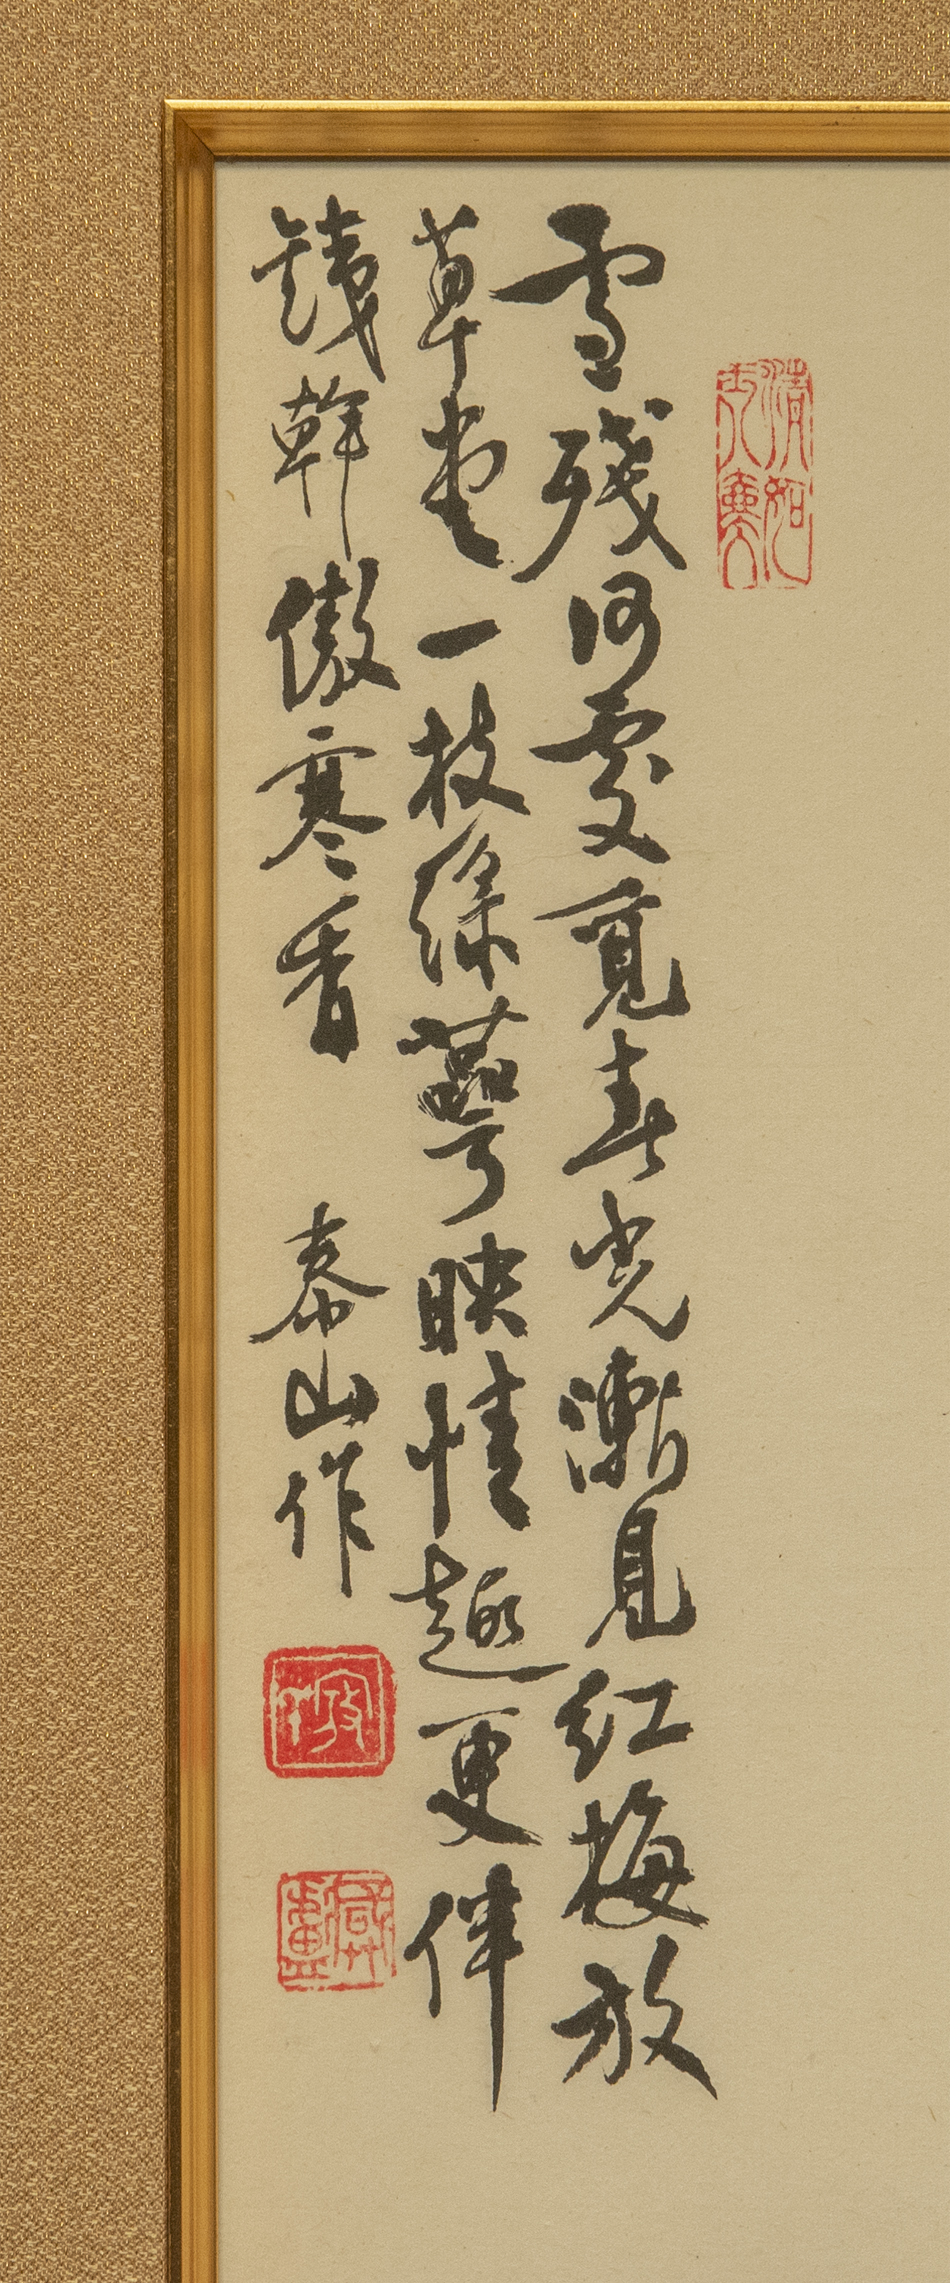 雪殘何處覓春光漸見紅梅放
草堂一枝綠萼映情趣更伴
銕幹傲寒香
泰山作